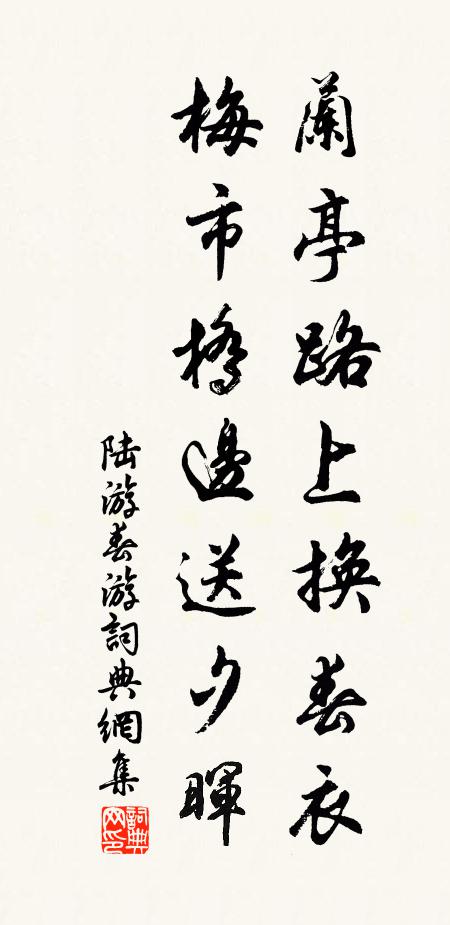 蘭亭路上換春衣
梅市橋邊送夕暉
陸游春游詞典網集
詞典網印